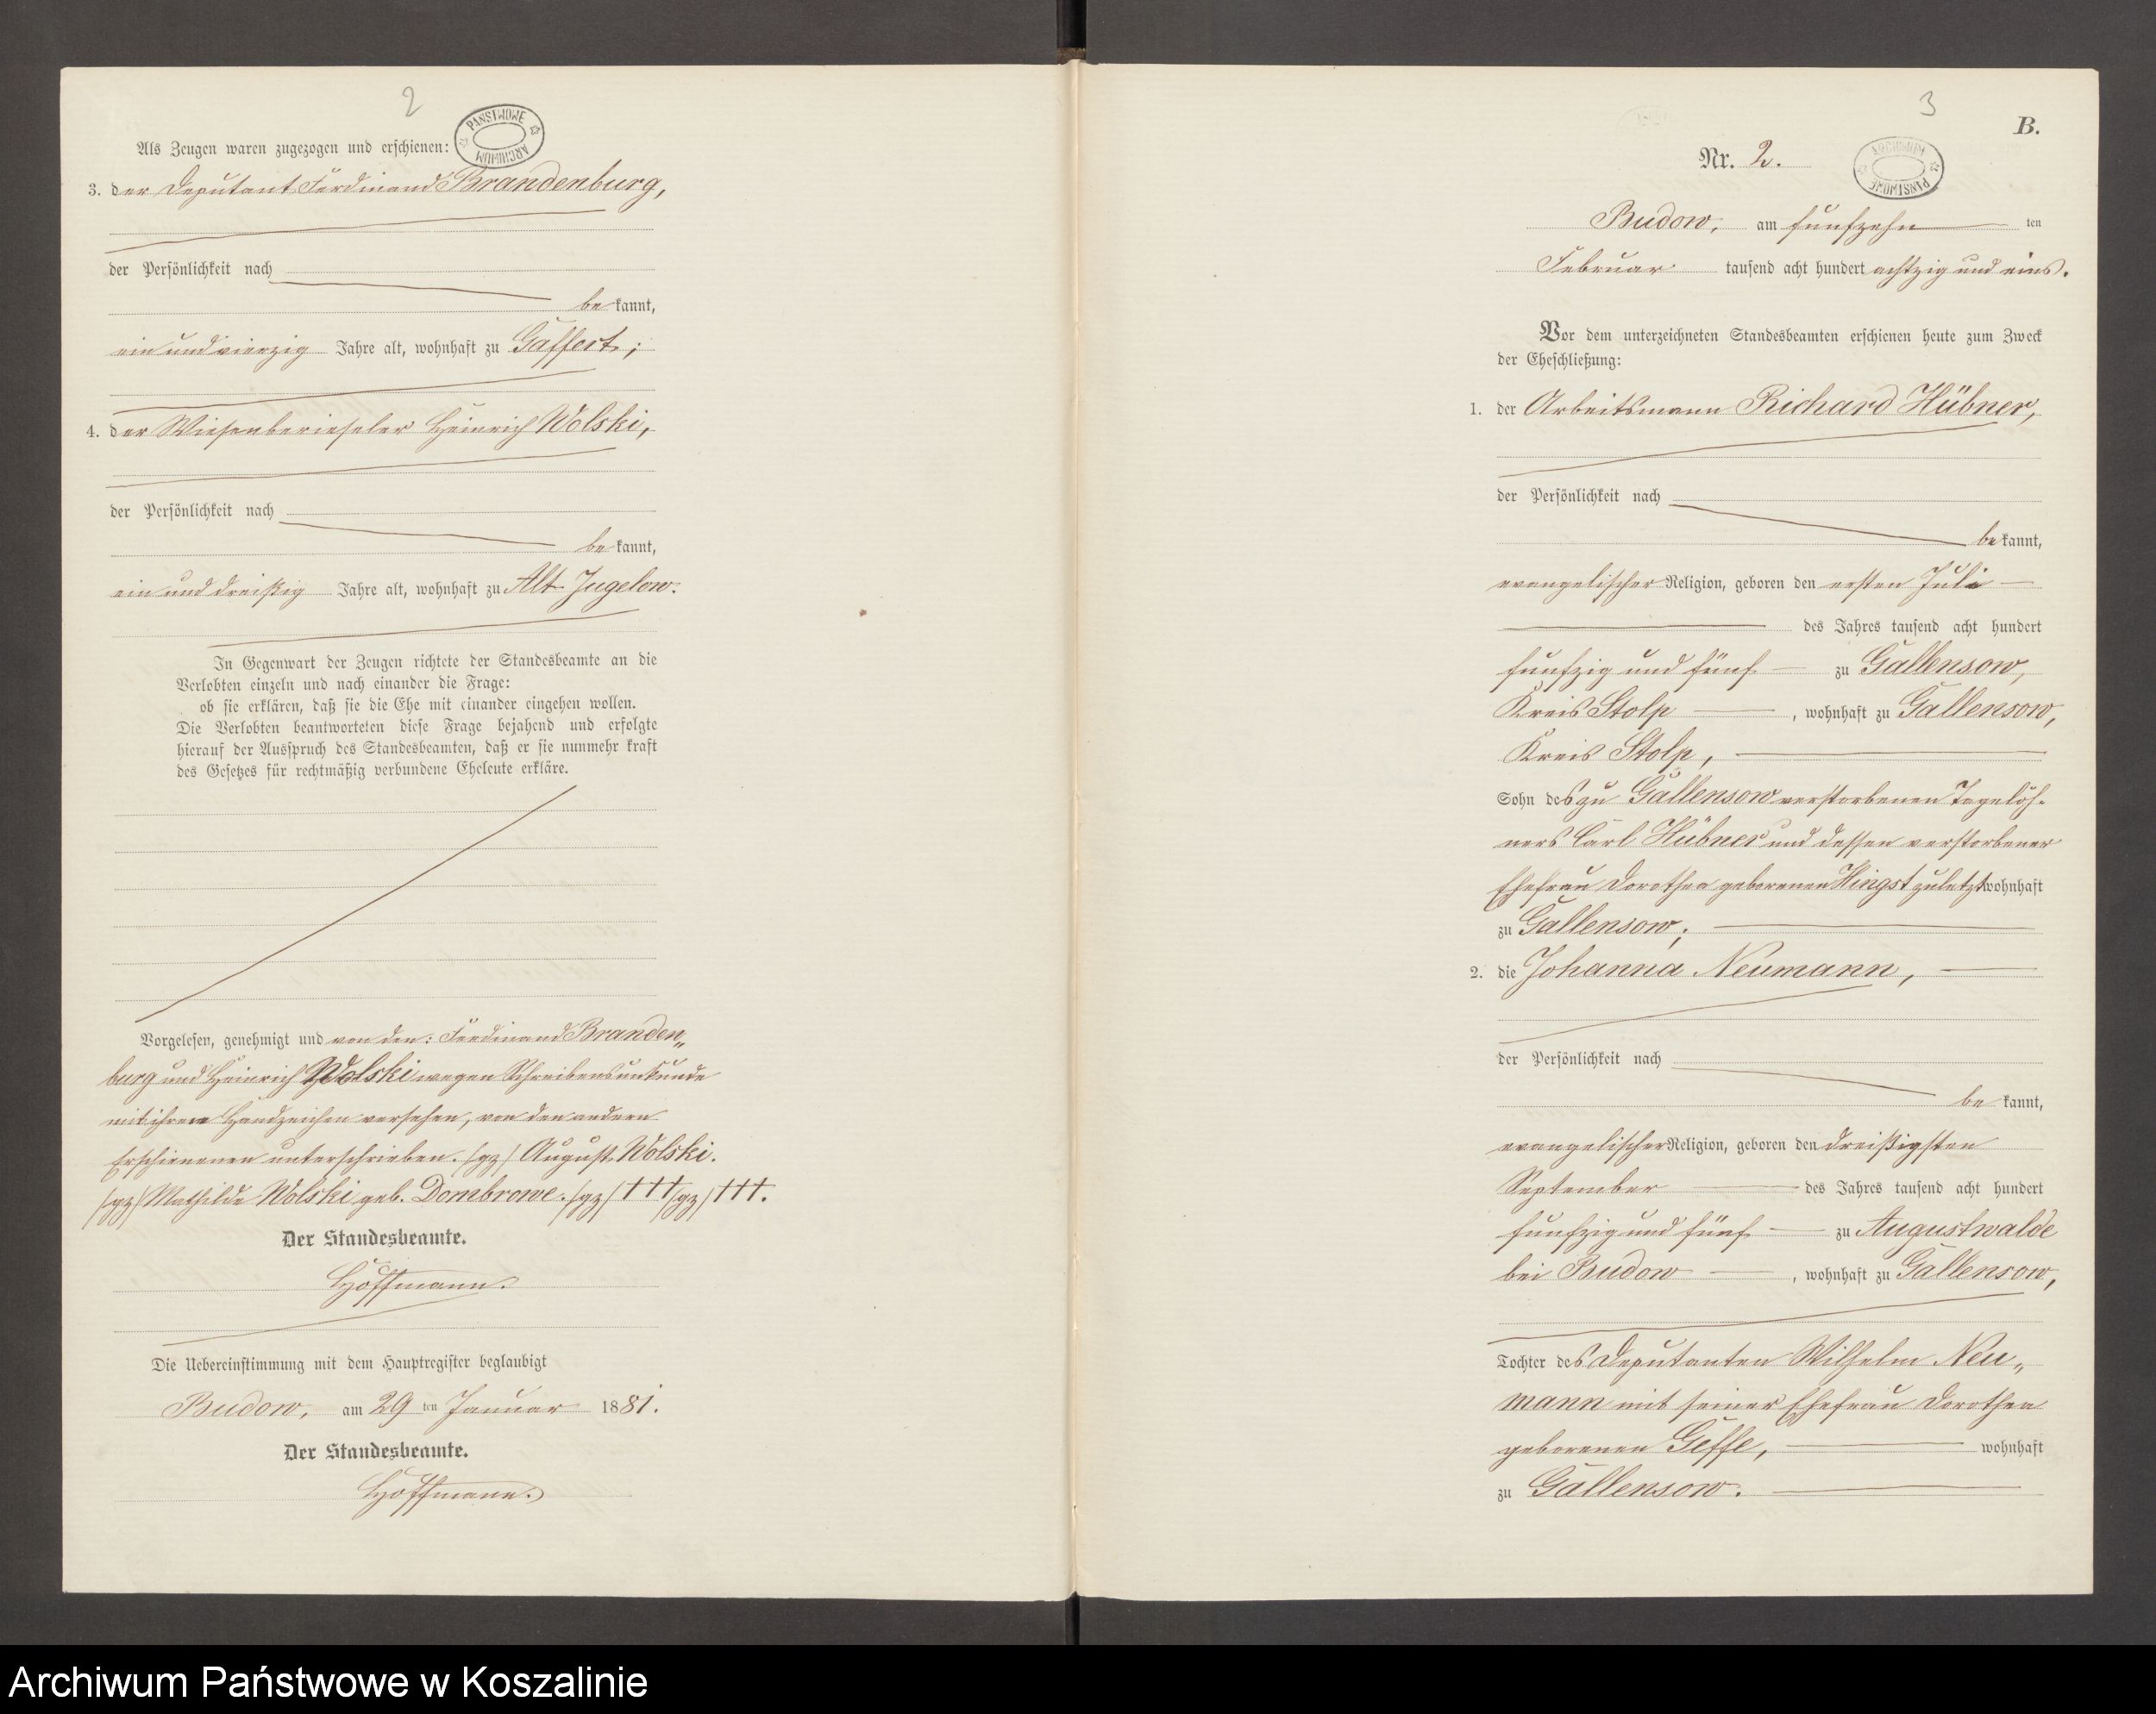 2
PAŃSTWOWE ARCHIWUM
Als Zeugen waren zugezogen und erschienen:
3. der Deputant Ferdinand Brandenburg,
der Persönlichkeit nach
be kannt,
ein und vierzig Jahre alt, wohnhaft zu Gaffert;
4. der Wiesenberieseler Heinrich Wolski,
der Persönlichkeit nach
be kannt,
ein und dreißig Jahre alt, wohnhaft zu Alt Jugelow.
In Gegenwart der Zeugen richtete der Standesbeamte an die
Verlobten einzeln und nach einander die Frage:
ob sie erklären, daß sie die Ehe mit einander eingehen wollen.
Die Verlobten beantworteten diese Frage bejahend und erfolgte
hierauf der Ausspruch des Standesbeamten, daß er sie nunmehr kraft
des Gesetzes für rechtmäßig verbundene Eheleute erkläre.
Vorgelesen, genehmigt und von den: Ferdinand Branden„
burg und Heinrich Wolski wegen Schreibensunkunde
mit ihren Handzeichen versehen, von den andern
Erschienenen unterschrieben. /gz/ August Wolski.
/gz/ Mathilde Wolski geb. Dombrowe. /gz/ ††† /gz/ †††.
Der Standesbeamte.
Hoffmann.
Die Uebereinstimmung mit dem Hauptregister beglaubigt
Budow, am 29 ten Januar 1881.
Der Standesbeamte.
Hoffmann.
3
B.
Nr. 2.
ARCHIWUM PAŃSTWOWE
Budow, am funfzehn ten
Februar tausend acht hundert achtzig und eins.
Vor dem unterzeichneten Standesbeamten erschienen heute zum Zweck
der Eheschließung:
1. der Arbeitsmann Richard Hübner,
der Persönlichkeit nach
be kannt,
evangelischer Religion, geboren den ersten Juli
des Jahres tausend acht hundert
funfzig und fünf zu Gallensow,
Kreis Stolp, wohnhaft zu Gallensow,
Kreis Stolp,
Sohn des zu Gallensow verstorbenen Tagelöh-
ners Carl Hübner und dessen verstorbener
Ehefrau Dorothea geborenen Hingst zuletzt wohnhaft
zu Gallensow;
2. die Johanna Neumann,
der Persönlichkeit nach
be kannt,
evangelischer Religion, geboren den dreißigsten
September des Jahres tausend acht hundert
funfzig und fünf zu Augustwalde
bei Budow, wohnhaft zu Gallensow,
Tochter des Deputanten Wilhelm Neu„
mann mit seiner Ehefrau Dorothea
geborenen Geffe, wohnhaft
zu Gallensow.
Archiwum Państwowe w Koszalinie